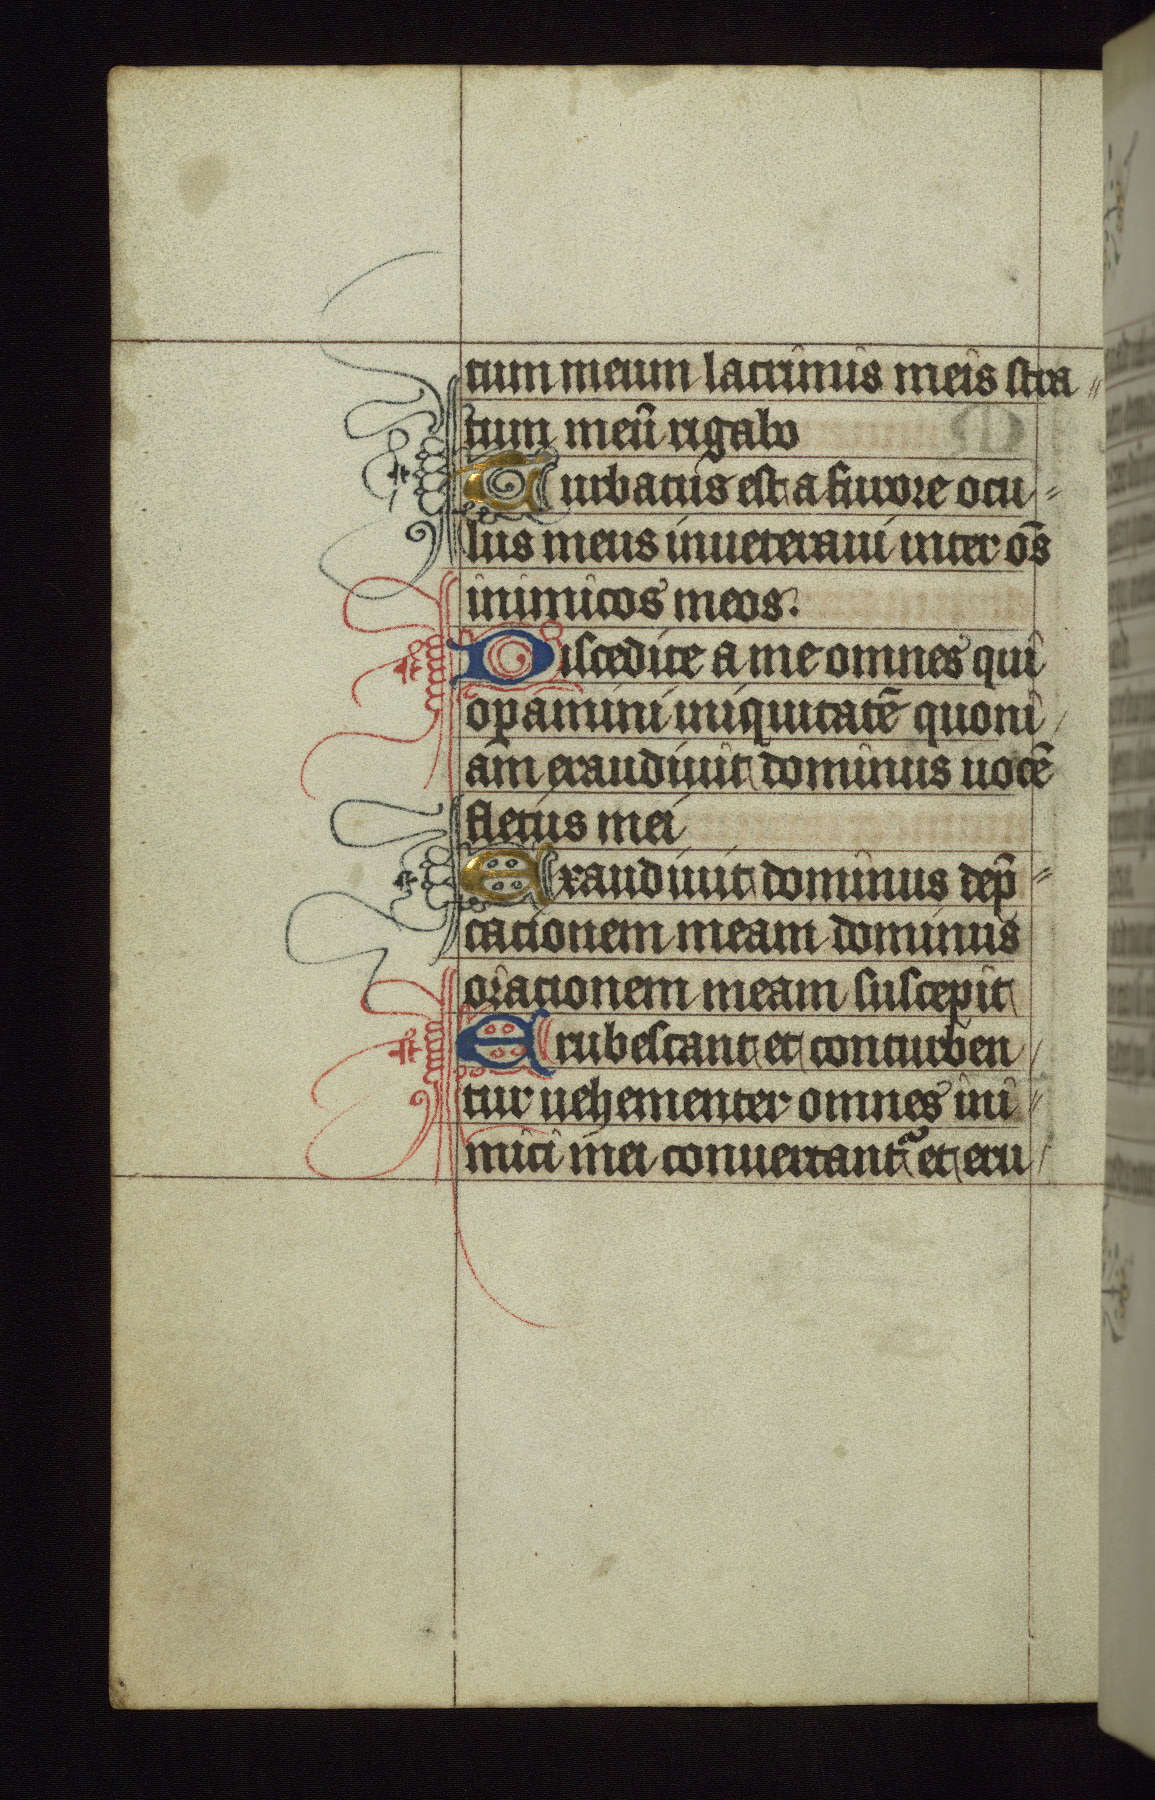 tum meum lacrimis meis stra
tum meū rigabo
Turbatus est a furore ocu
lus meus inueteraui inter os̄
inimicos meos.
Discedite a me omnes qui
opamini iniquitatē quoni
am exaudiuit dominus uocē
fletus mei
Exaudiuit dominus dep̄
cationem meam dominus
orationem meam suscepit
Erubescant et conturben
tur uehementer omnes ini
mici mei conuertant᷑ et eru